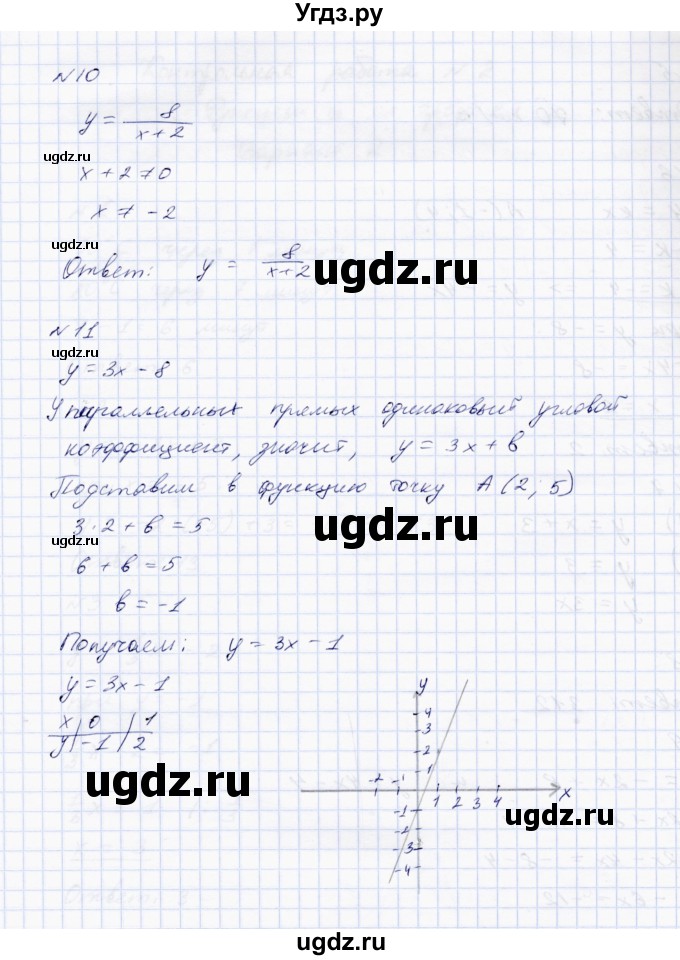 Угдз.ру
N10
y = 8/(x+2)
ugdz.ru
x + 2 ≠ 0
x ≠ -2
ugdz.ru
Ответ: y = 8/(x+2)
ugdz.ru
N11
ugdz.ru
y = 3x - 8
У параллельных прямых одинаковый угловой
коэффициент, значит, y = 3x + b
Подставим в функцию точку A (2; 5)
3·2 + b = 5
ugdz.ru
ugdz.ru
6 + b = 5
b = -1
Получаем: y = 3x - 1
y = 3x - 1
x | 0 | 1
y | -1 | 2
ugdz.ru
y
4
3
2
1
-2 -1
1 2 3 4
x
-1
-2
-3
-4
ugdz.ru
ugdz.ru